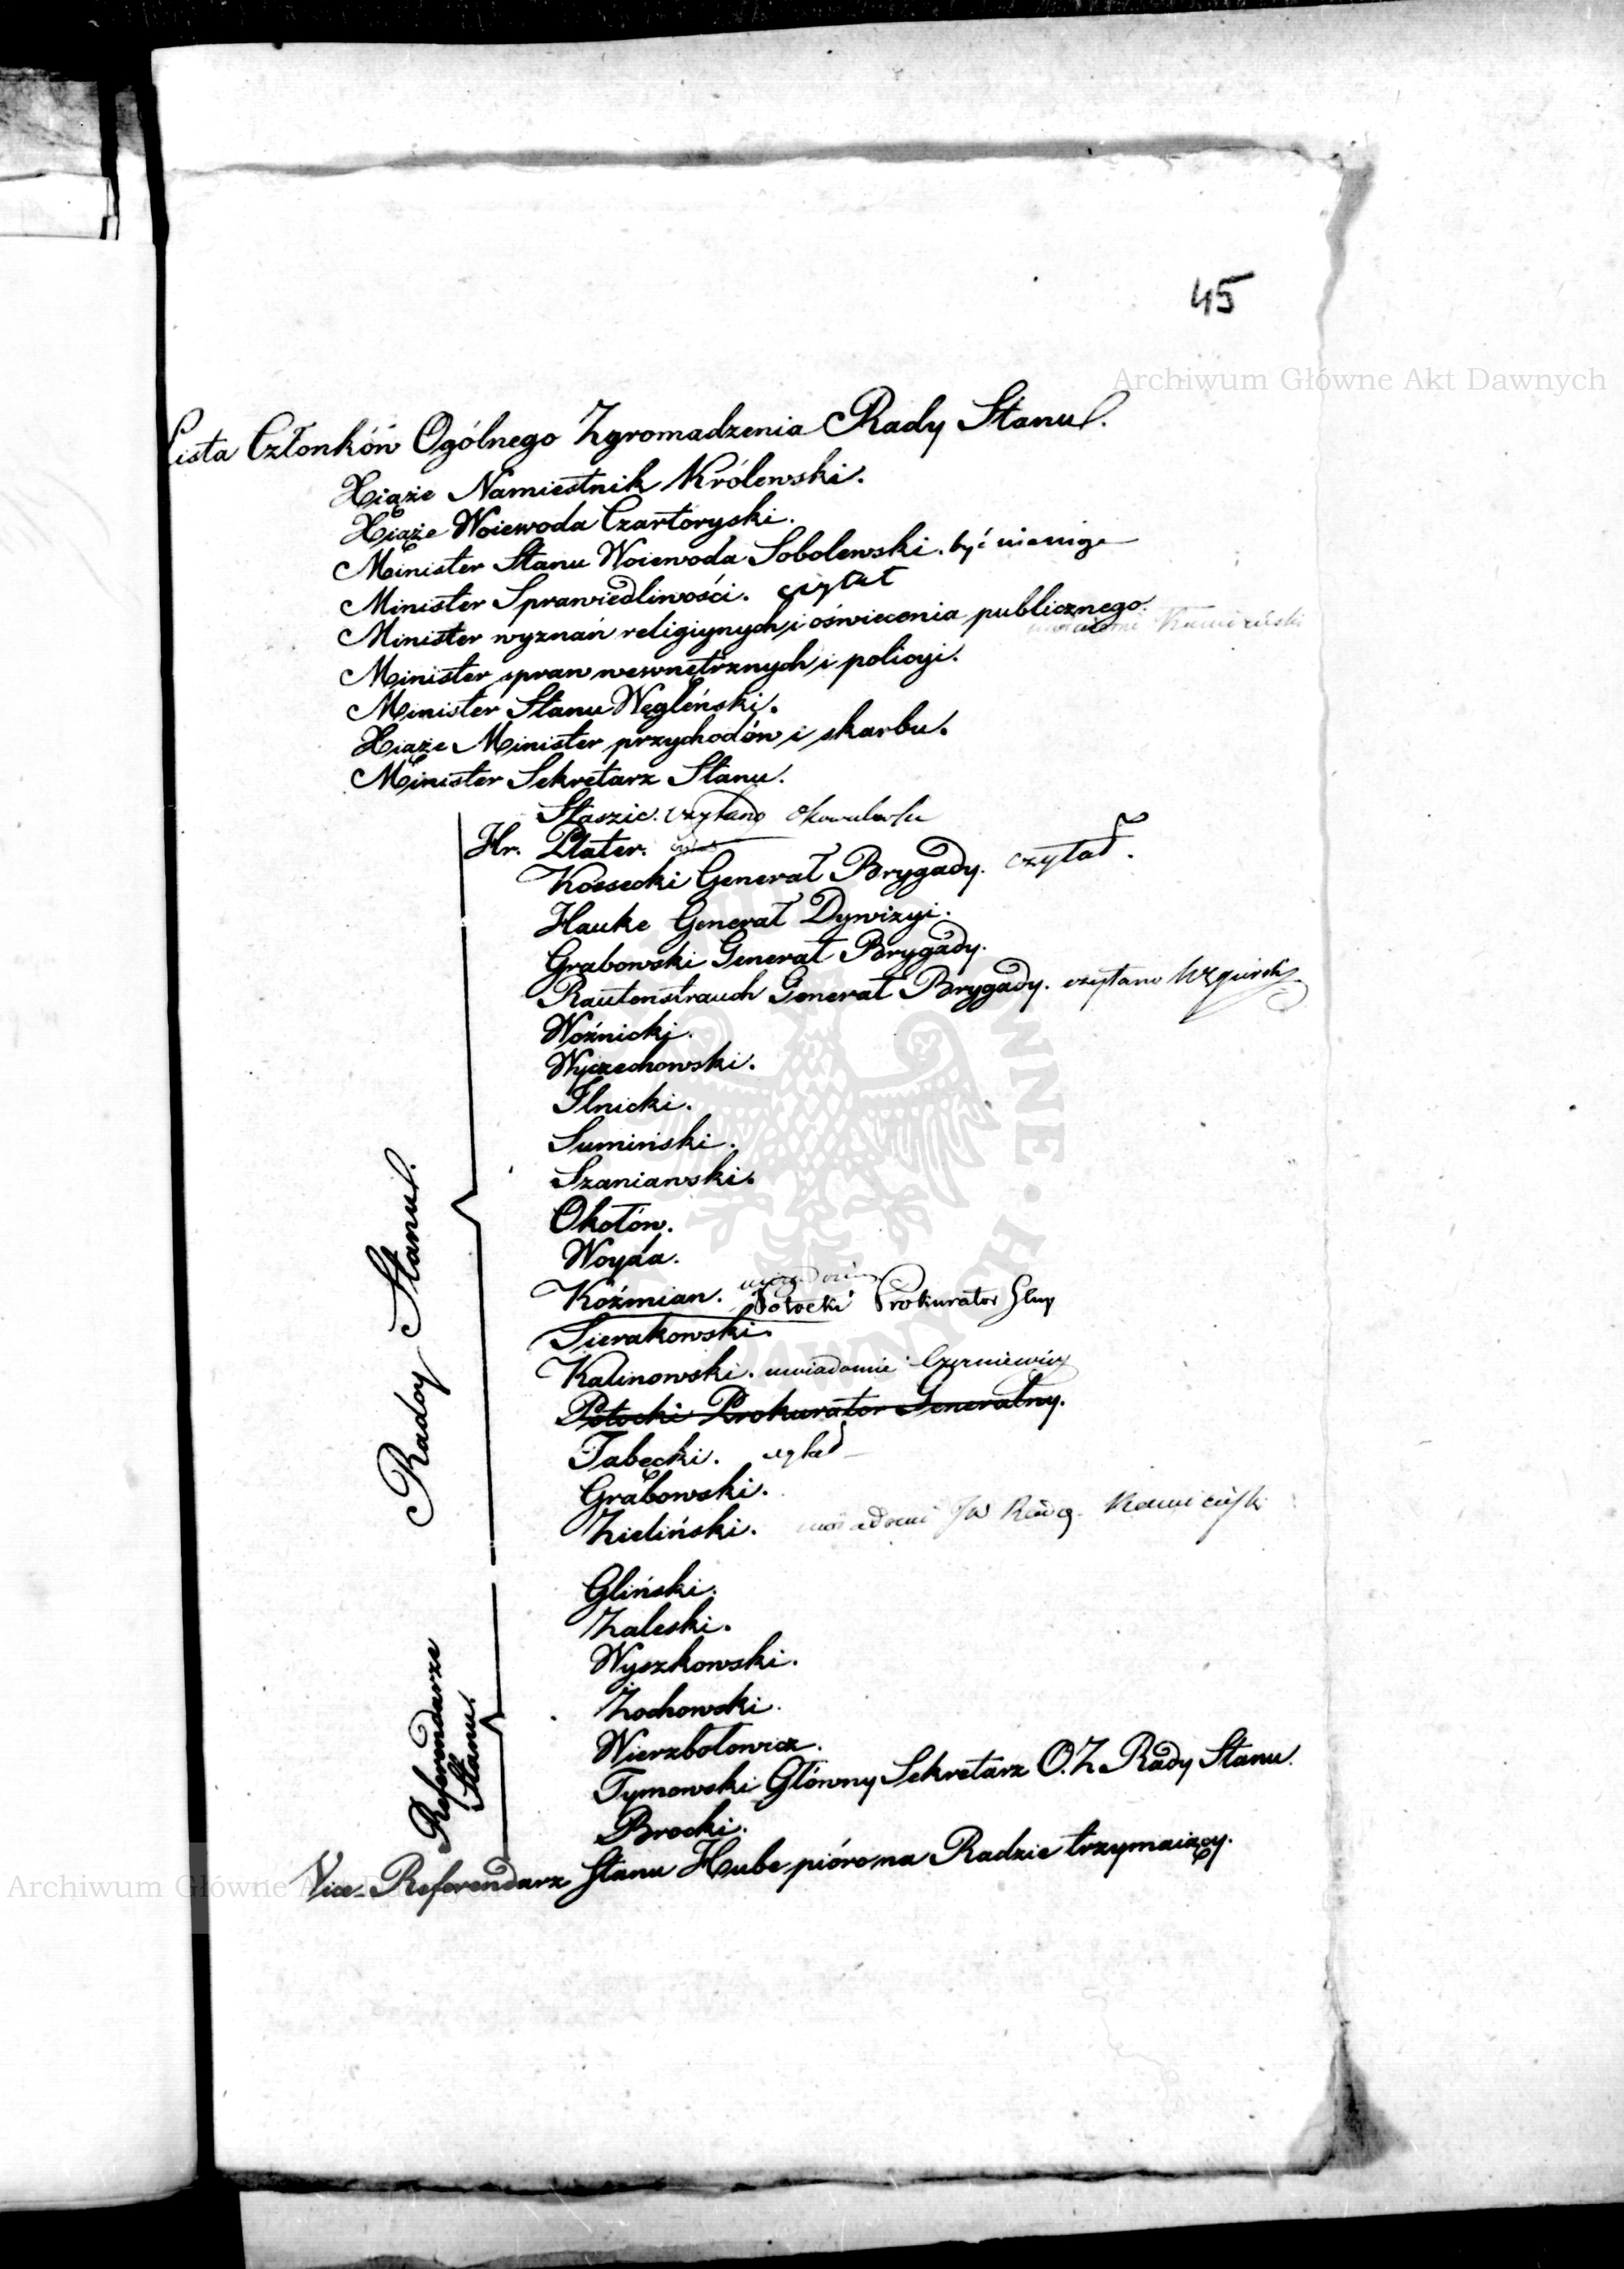 45
Archiwum Główne Akt Dawnych
Lista Członków Ogólnego Zgromadzenia Rady Stanu.
Xiąże Namiestnik Królewski.
Xiąże Woiewoda Czartoryski.
Minister Stanu Woiewoda Sobolewski. być niemoge
Minister Sprawiedliwości. czytał
Minister wyznań religiynych i oświecenia publicznego.
Minister spraw wewnętrznych i policyi.
Minister Stanu Węgleński.
Xiąże Minister przychodów i skarbu.
Minister Sekretarz Stanu.
Rady Stanu.
Staszic. czytano
Hr. Plater.
Kossecki Generał Brygady. czytał.
Hauke Generał Dywizyi.
Grabowski Generał Brygady.
Rautenstrauch Generał Brygady. czytano
Woźnicki.
Wyczechowski.
Ilnicki.
Sumiński.
Szaniawski.
Okołów.
Woyda.
Koźmian.
Potocki Prokurator
Sierakowski.
Kalinowski. uwiadomie Czerniewicz
Potocki Prokurator Generalny.
Tabęcki. czytał
Grabowski.
Zieliński. uwiadomi JW Radca
Referendarze
Stanu
Gliński.
Zaleski.
Wyszkowski.
Żochowski.
Wierzbołowicz.
Tymowski Główny Sekretarz O. Z. Rady Stanu.
Brocki.
Vice-Referendarz Stanu Hube pióro na Radzie trzymaiący.
Archiwum Główne